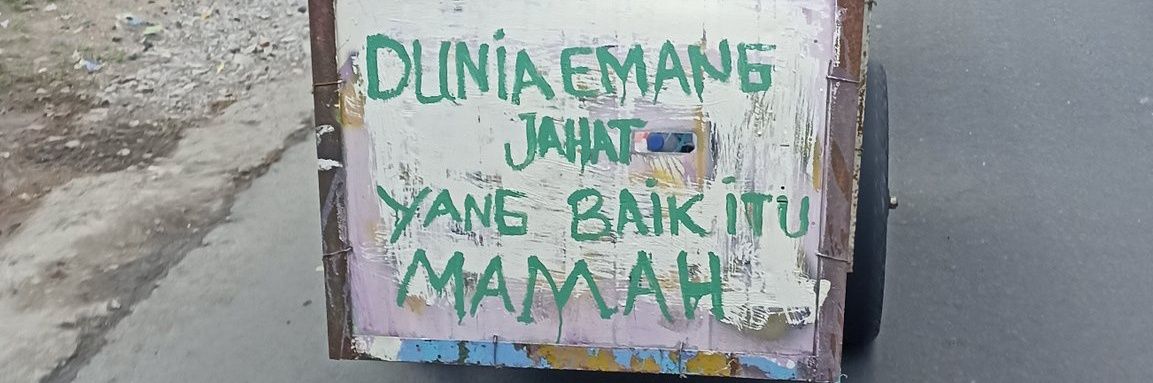 DUNiA EMANG
JAHAT
YANG BAiK iTU
MAMAH